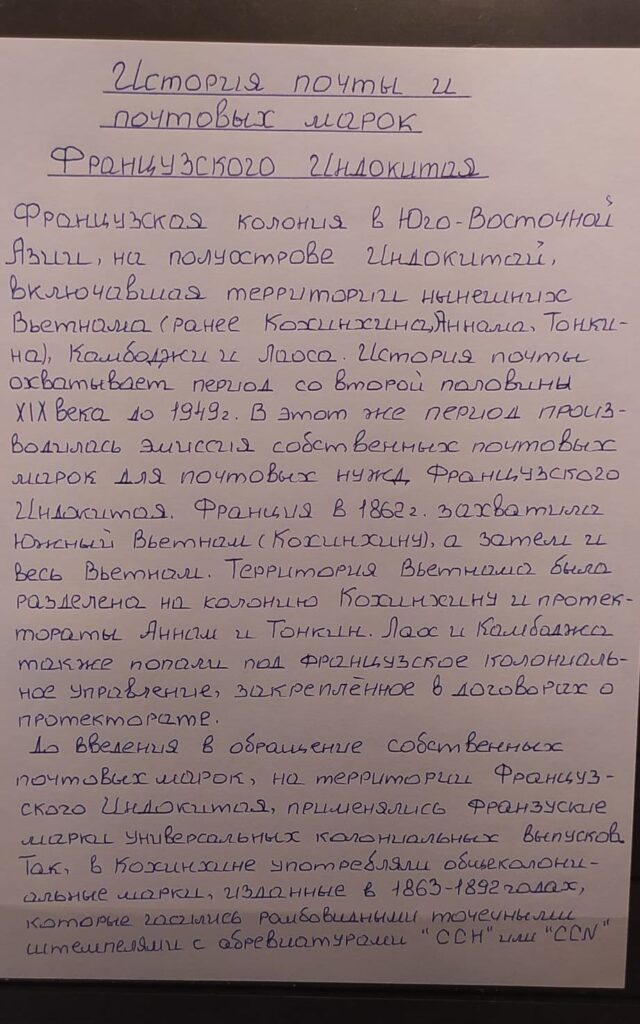 История почты и
почтовых марок
Французского Индокитая
Французская колония в Юго-Восточной
Азии, на полуострове Индокитай,
включавшая территории нынешних
Вьетнама (ранее Кохинхина, Аннама, Тонки-
на), Камбоджи и Лаоса. История почты
охватывает период со второй половины
XIX века до 1949г. В этот же период произ-
водилась эмиссия собственных почтовых
марок для почтовых нужд Французского
Индокитая. Франция в 1862г. захватила
Южный Вьетнам (Кохинхину), а затем и
весь Вьетнам. Территория Вьетнама была
разделена на колонию Кохинхину и протек-
тораты Аннам и Тонкин. Лаос и Камбоджа
также попали под французское колониаль-
ное управление, закреплённое в договорах о
протекторате.
До введения в обращение собственных
почтовых марок, на территории Француз-
ского Индокитая, применялись Франзуские
марки универсальных колониальных выпусков.
Так, в Кохинхине употребляли общеколони-
альные марки, изданные в 1863-1892 годах,
которые гасились ромбовидными точечными
штемпелями с абревиатурами "ССН" или "CCN"